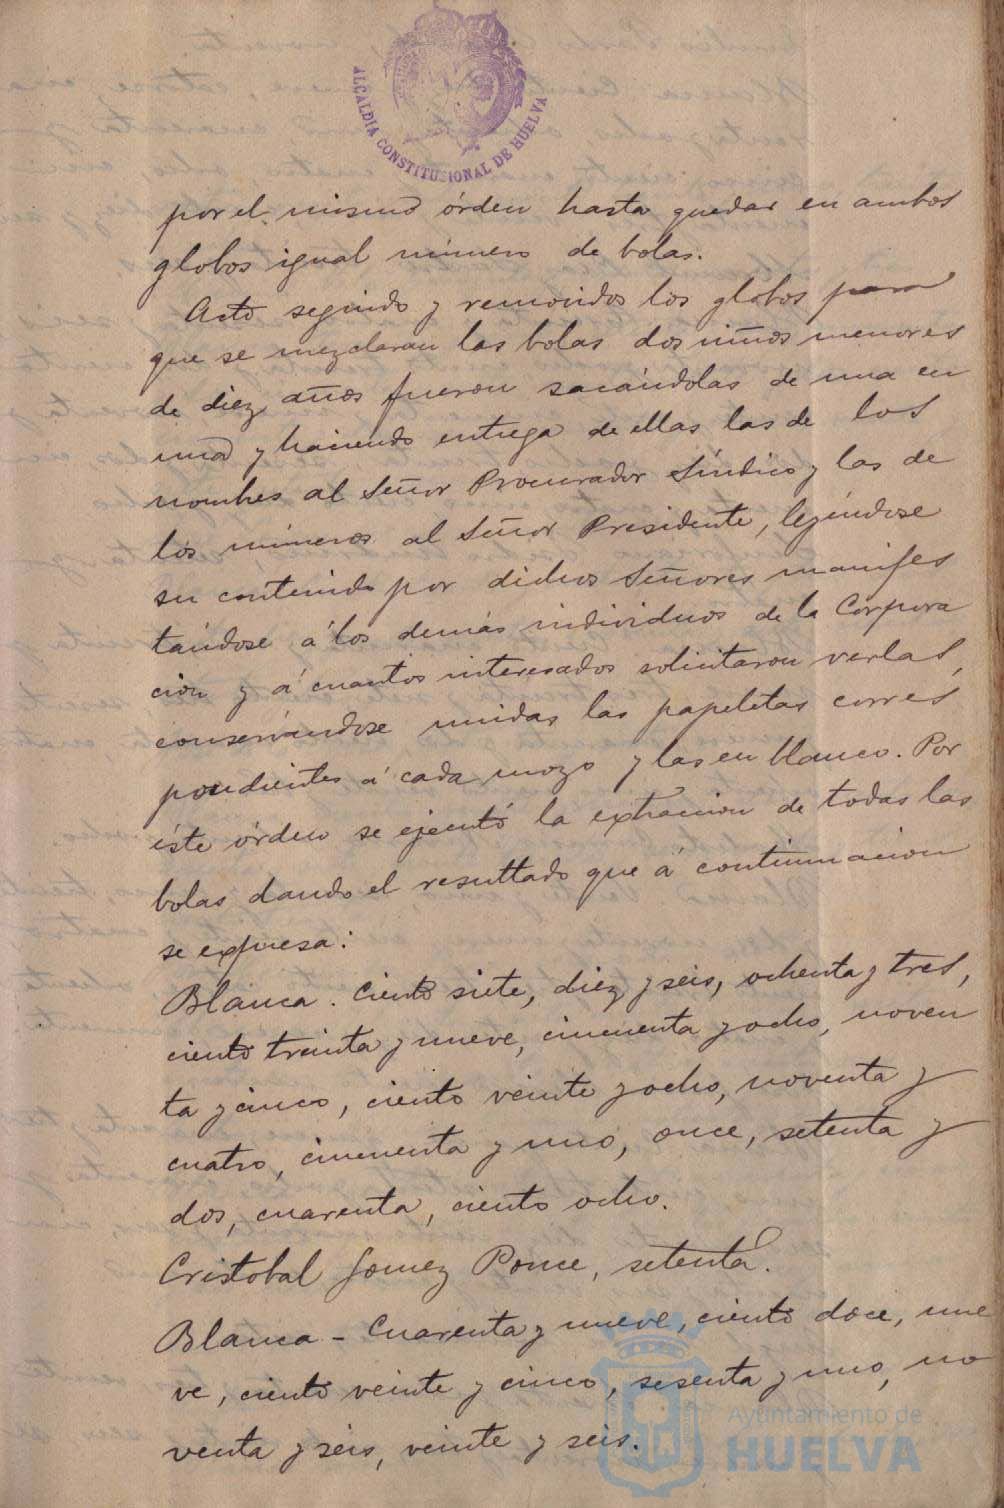 ALCALDIA CONSTITUCIONAL DE HUELVA
por el mismo órden hasta quedar en ambos
globos igual número de bolas.
Acto seguido y removidos los globos para
que se mezclaran las bolas dos niños menores
de diez años fueron sacándolas de una en
una y haciendo entrega de ellas las de los
nombres al Señor Procurador Síndico y las de
los números al Señor Presidente, leyéndose
su contenido por dichos Señores manifes
tándose á los demás individuos de la Corpora
cion y á cuantos interesados solicitaron verlas,
conservándose unidas las papeletas corres
pondientes á cada mozo y las en blanco. Por
éste órden se ejecutó la extraccion de todas las
bolas dando el resultado que á continuacion
se expresa:
Blanca. Ciento siete, diez y seis, ochenta y tres,
ciento treinta y nueve, cincuenta y ocho, noven
ta y cinco, ciento veinte y ocho, noventa y
cuatro, cincuenta y uno, once, setenta y
dos, cuarenta, ciento ocho.
Cristobal Gomez Ponce, setenta.
Blanca - Cuarenta y nueve, ciento doce, nue
ve, ciento veinte y cinco, sesenta y uno, no
venta y seis, veinte y seis.
Ayuntamiento de
HUELVA